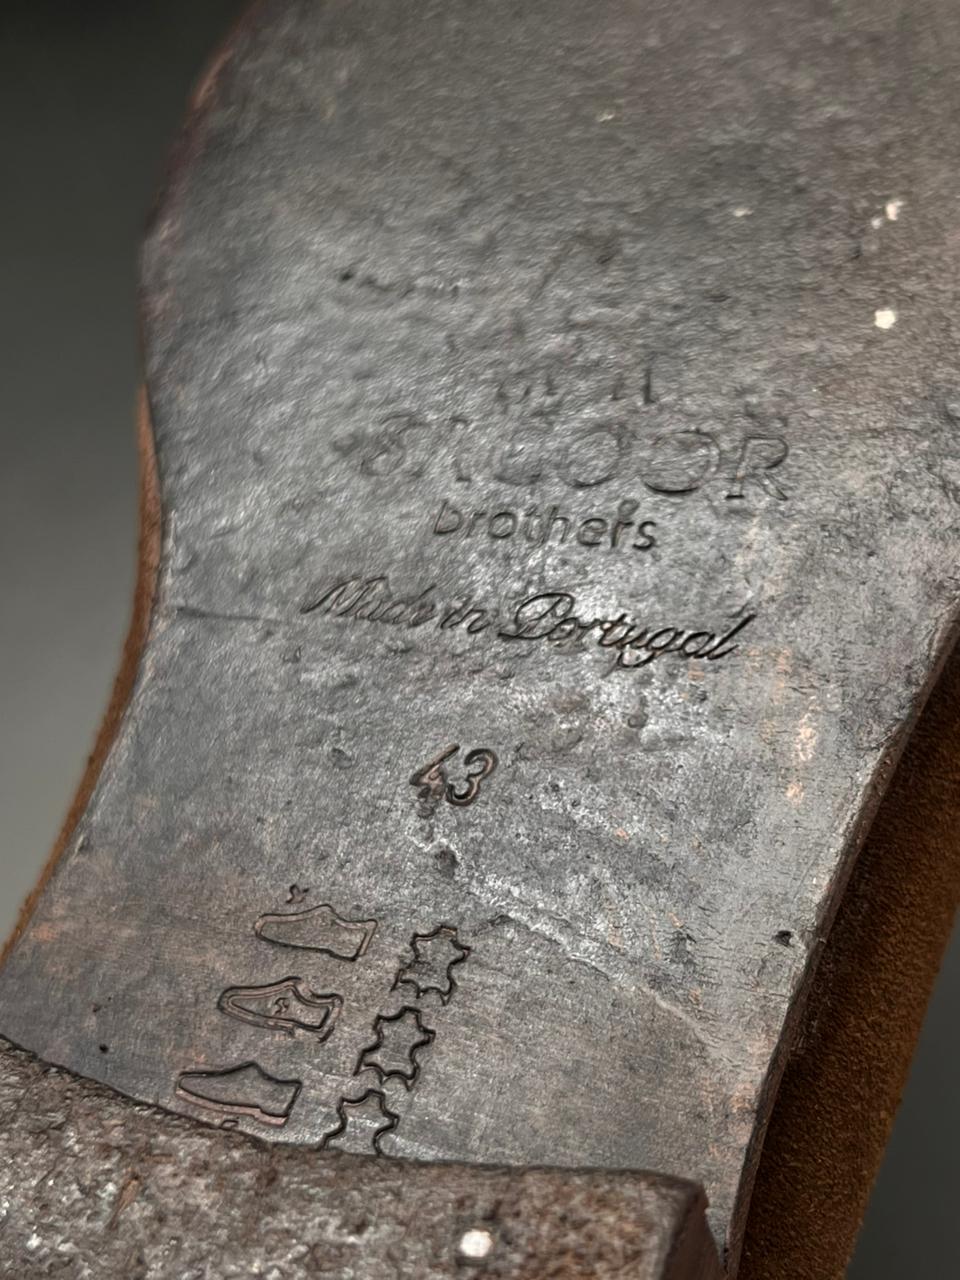 brothers
Made in Portugal
43